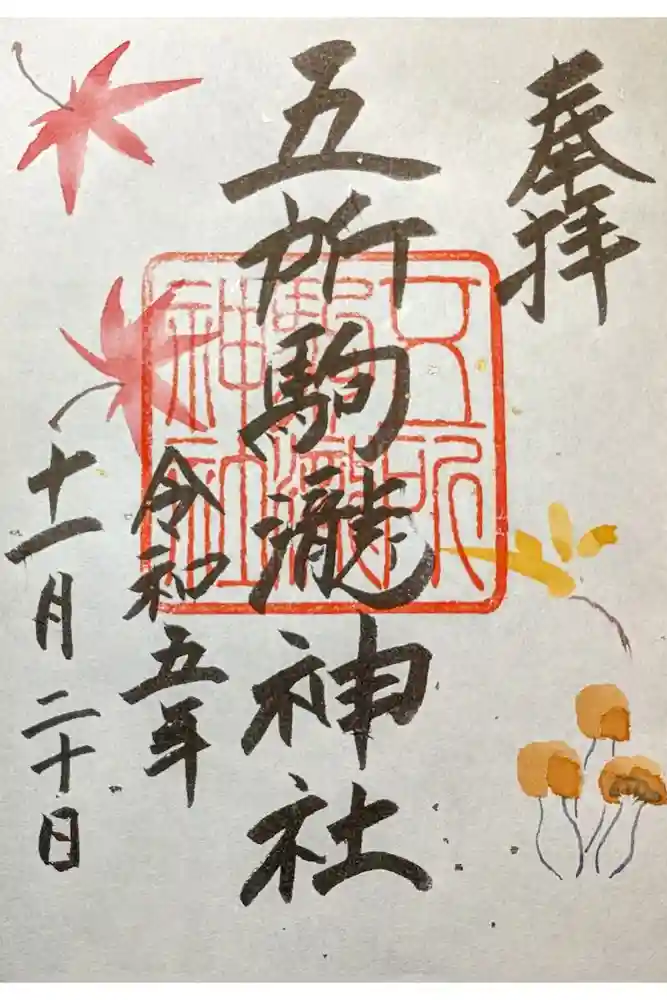 奉拝
五所駒瀧神社
五所
駒瀧
神社
令和五年
十一月二十日